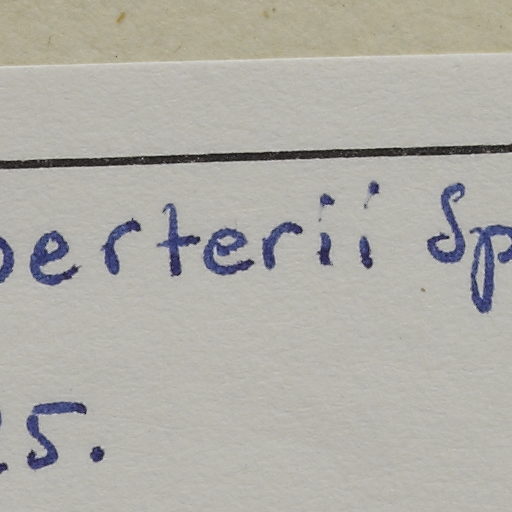 berterii Sp
25.